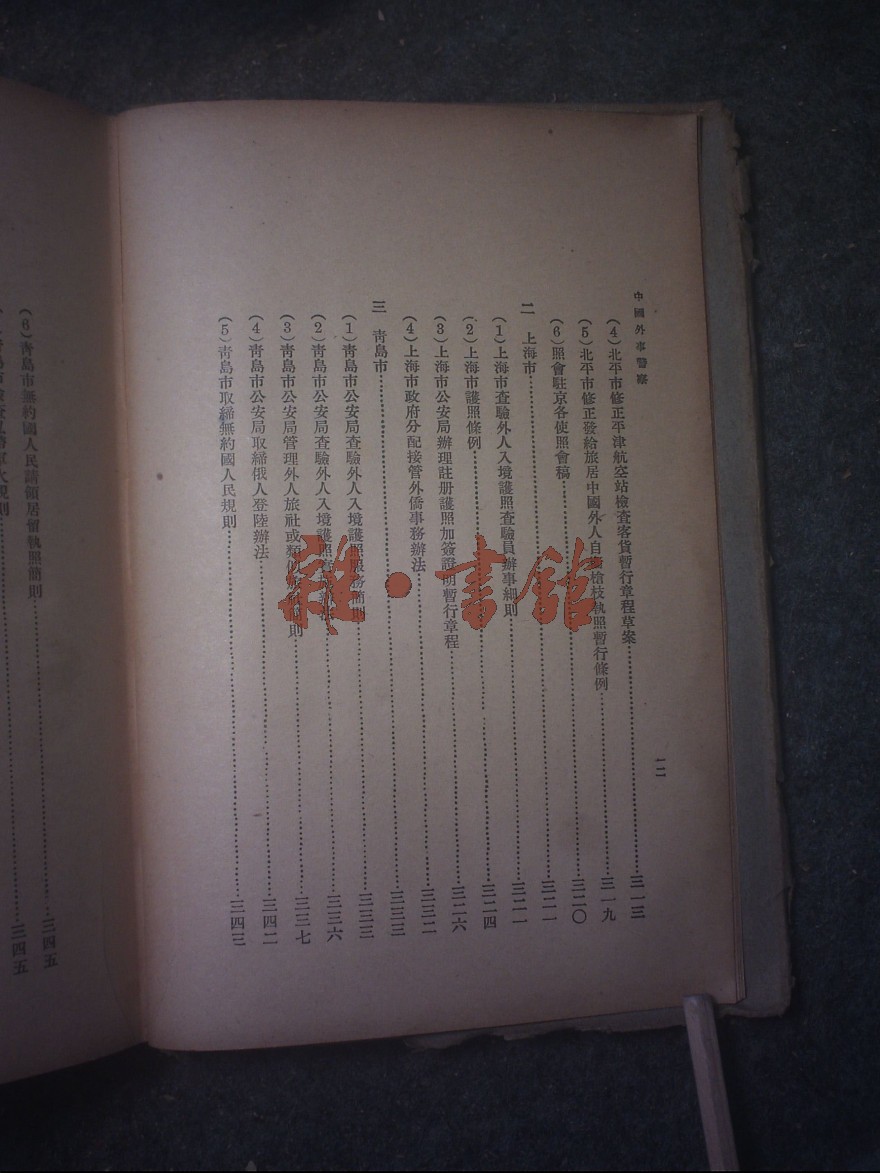 中國外事警察
(4)北平市修正平津航空站檢查客貨暫行章程草案⋯⋯三一三
(5)北平市修正發給旅居中國外人自 槍枝執照暫行條例⋯⋯三一九
(6)照會駐京各使照會稿⋯⋯三二〇
二 上海市⋯⋯三二一
(1)上海市查驗外人入境護照查驗員辦事細則⋯⋯三二一
(2)上海市護照條例⋯⋯三二四
(3)上海市公安局辦理註册護照加簽證明暫行章程⋯⋯三二六
(4)上海市政府分配接管外僑事務辦法⋯⋯三三二
三 靑島市⋯⋯三三三
(1)靑島市公安局查驗外人入境護照服務簡則⋯⋯三三三
(2)靑島市公安局查驗外人入境護照⋯⋯三三六
(3)靑島市公安局管理外人旅社或類 則⋯⋯三三七
(4)靑島市公安局取締俄人登陸辦法⋯⋯三四二
(5)靑島市取締無約國人民規則⋯⋯三四三
一二
(6)靑島市無約國人民請領居留執照簡則⋯⋯三四五
三四五
雜·書館